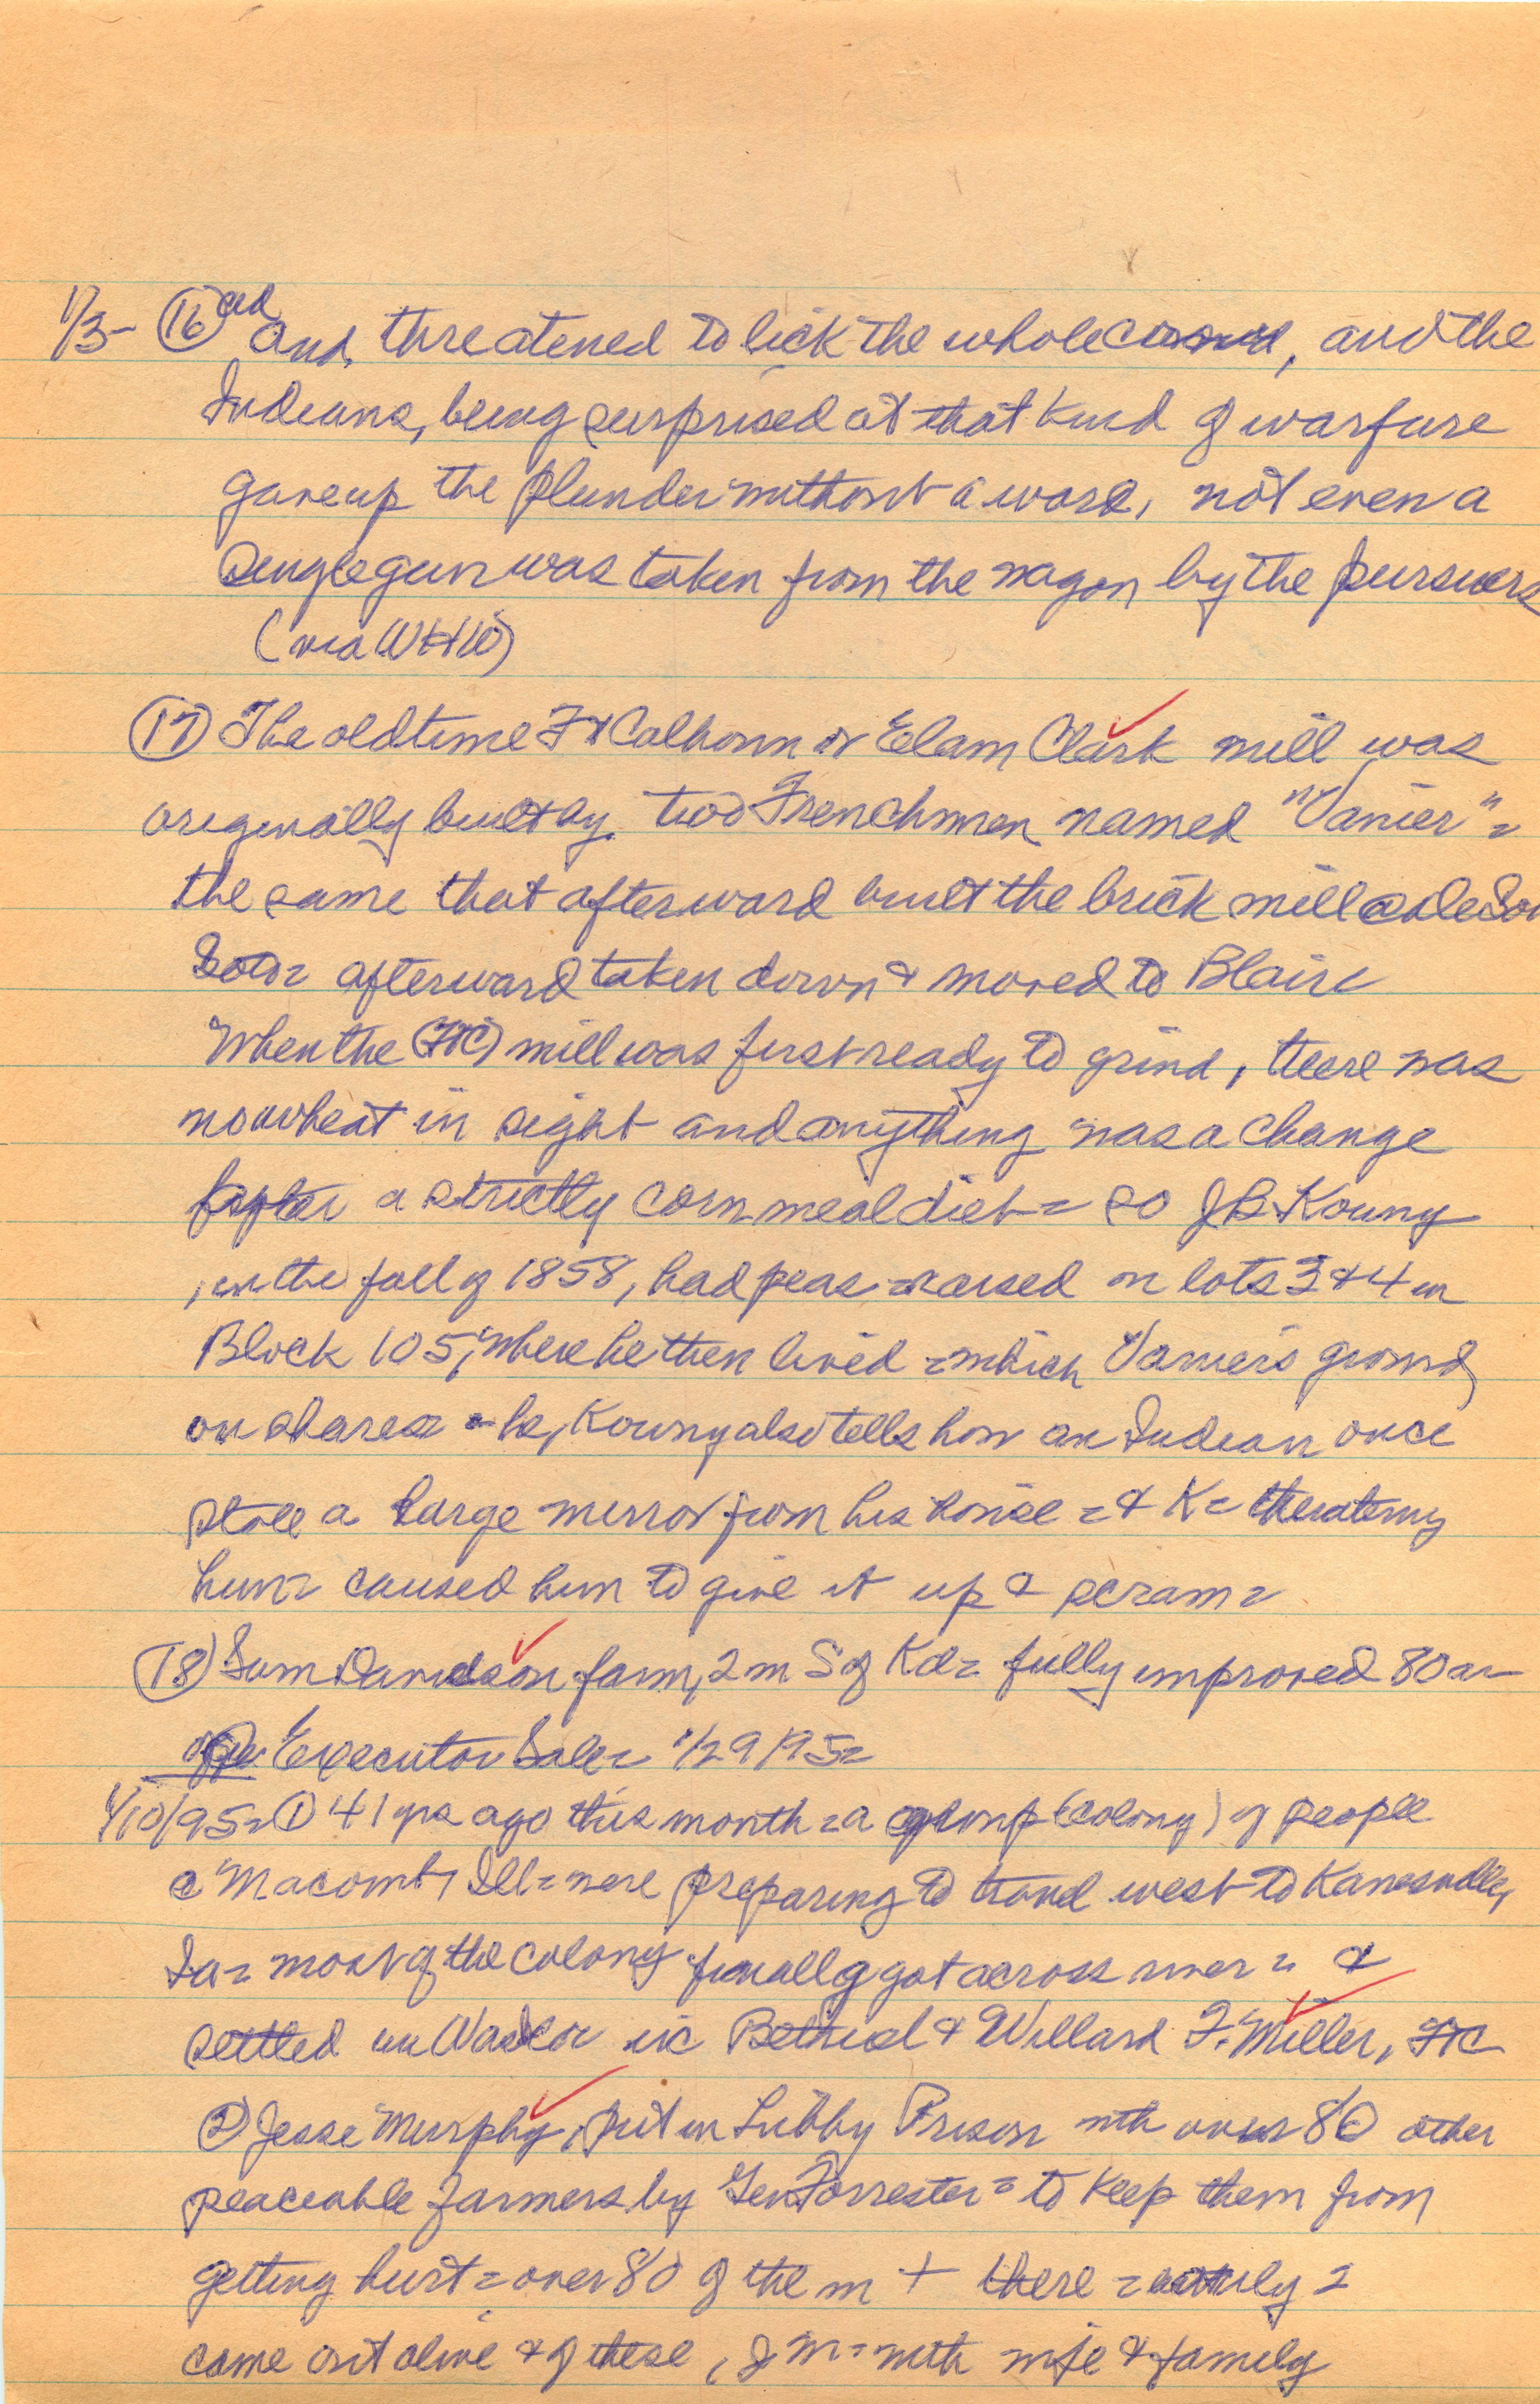 1/3- (16) ctd and threatened to lick the whole crowd, and the
Indians, being surprised at that kind of warfare
gave up the plunder without a word, not even a
single gun was taken from the wagon by the pursuers
(via WHW)
(17) The oldtime Ft Calhoun or Elam Clark mill was
originally built by two Frenchmen named "Vanier" =
the same that afterward built the brick mill @ DeSo
Soto = afterward taken down & moved to Blair
When the (FtC) mill was first ready to grind, there was
no wheat in sight and anything was a change
for a strictly corn meal diet = so JB Kouny
, in the fall of 1858, had peas raised on lots 3 & 4 in
Block 105, where he then lived = which Vaniers ground
on shares = he, Kouny also tells how an Indian once
stole a large mirror from his house = & K = threatening
him = caused him to give it up & scram =
(18) Sam Davidson farm, 2 m S of Kd = fully improved 80 a
Executor Sale = 1/29/95 =
1/10/95 = (1) 41 yrs ago this month = a group (colony) of people
@ Macomb, Ill = were preparing to travel west to Kanesville,
Ia = most of the colony finally got across river = &
settled in WashCo in Bethel & Willard F. Miller, FtC
(2) Jesse Murphy, put in Libby Prison with over 80 other
peaceable farmers by Gen Forrester = to keep them from
getting hurt = over 80 of them + there = only 2
came out alive & of these, JM = with wife & family